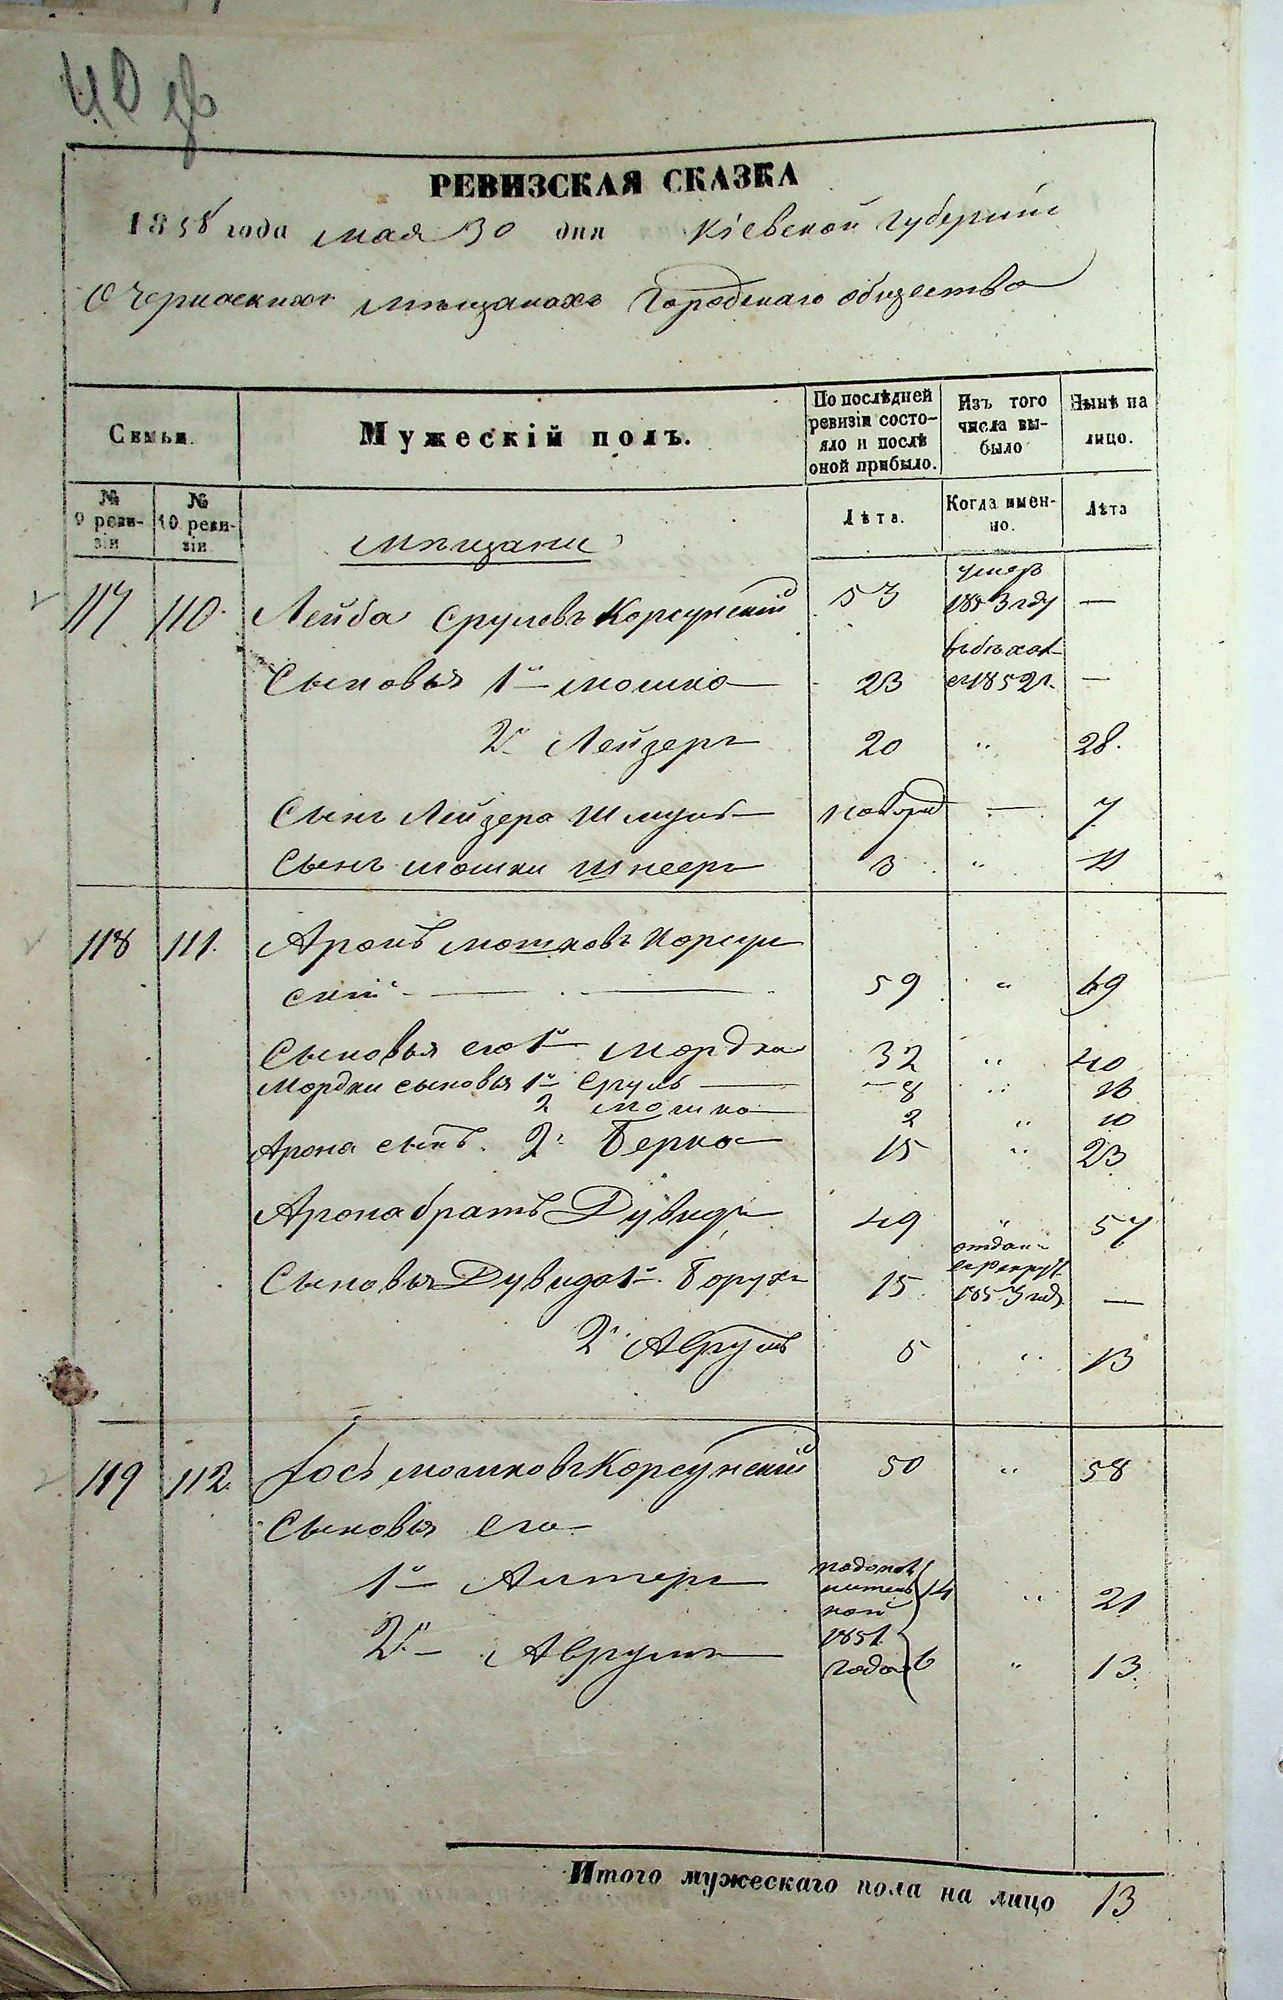 40
РЕВИЗСКАЯ СКАЗКА
1858 года мая 30 дня Кіевской губерніи
О Черкаскихъ мѣщанахъ Городскаго общества
Семьи.
Мужескій полъ.
По послѣдней ревизіи состо-
яло и послѣ
оной прибыло.
Изъ того
числа вы-
было
Нынѣ на
лицо.
№
9 реви-
зіи
№
10 реви-
зіи
Лѣта.
Когда имен-
но.
Лѣта
мѣщани
умеръ
117 110. Лейба Срулевъ Корсунскій 53 1853 году —
Сыновья 1й мошко 23 1852 г. —
2й Лейзеръ 20 " 28.
Сынъ Лейзера Шмуль новорж — 7
Сынъ мошки Шнееръ 3 " 11
118 111. Аронъ мошковъ Корсун
скій 59 " 69
Сыновья его 1й мордко 32 " 40
Мордки сыновья 1й Сруль 8 " 16
2 мошко 2 " 10
Арона сынъ. 2й Берко 15 " 23
Арона братъ Дувидъ 49 " 57
отдан
въ рекрут
Сыновья Дувида 1й Борухъ 15 1853 году —
2й Аврумъ 5 " 13
119 112. Іось мошковъ Корсунскій 50 " 58
Сыновья его
1й Алтеръ по дополнительной 14 " 21
2й Аврумъ 1851 года 6 " 13.
Итого мужескаго пола на лицо 13